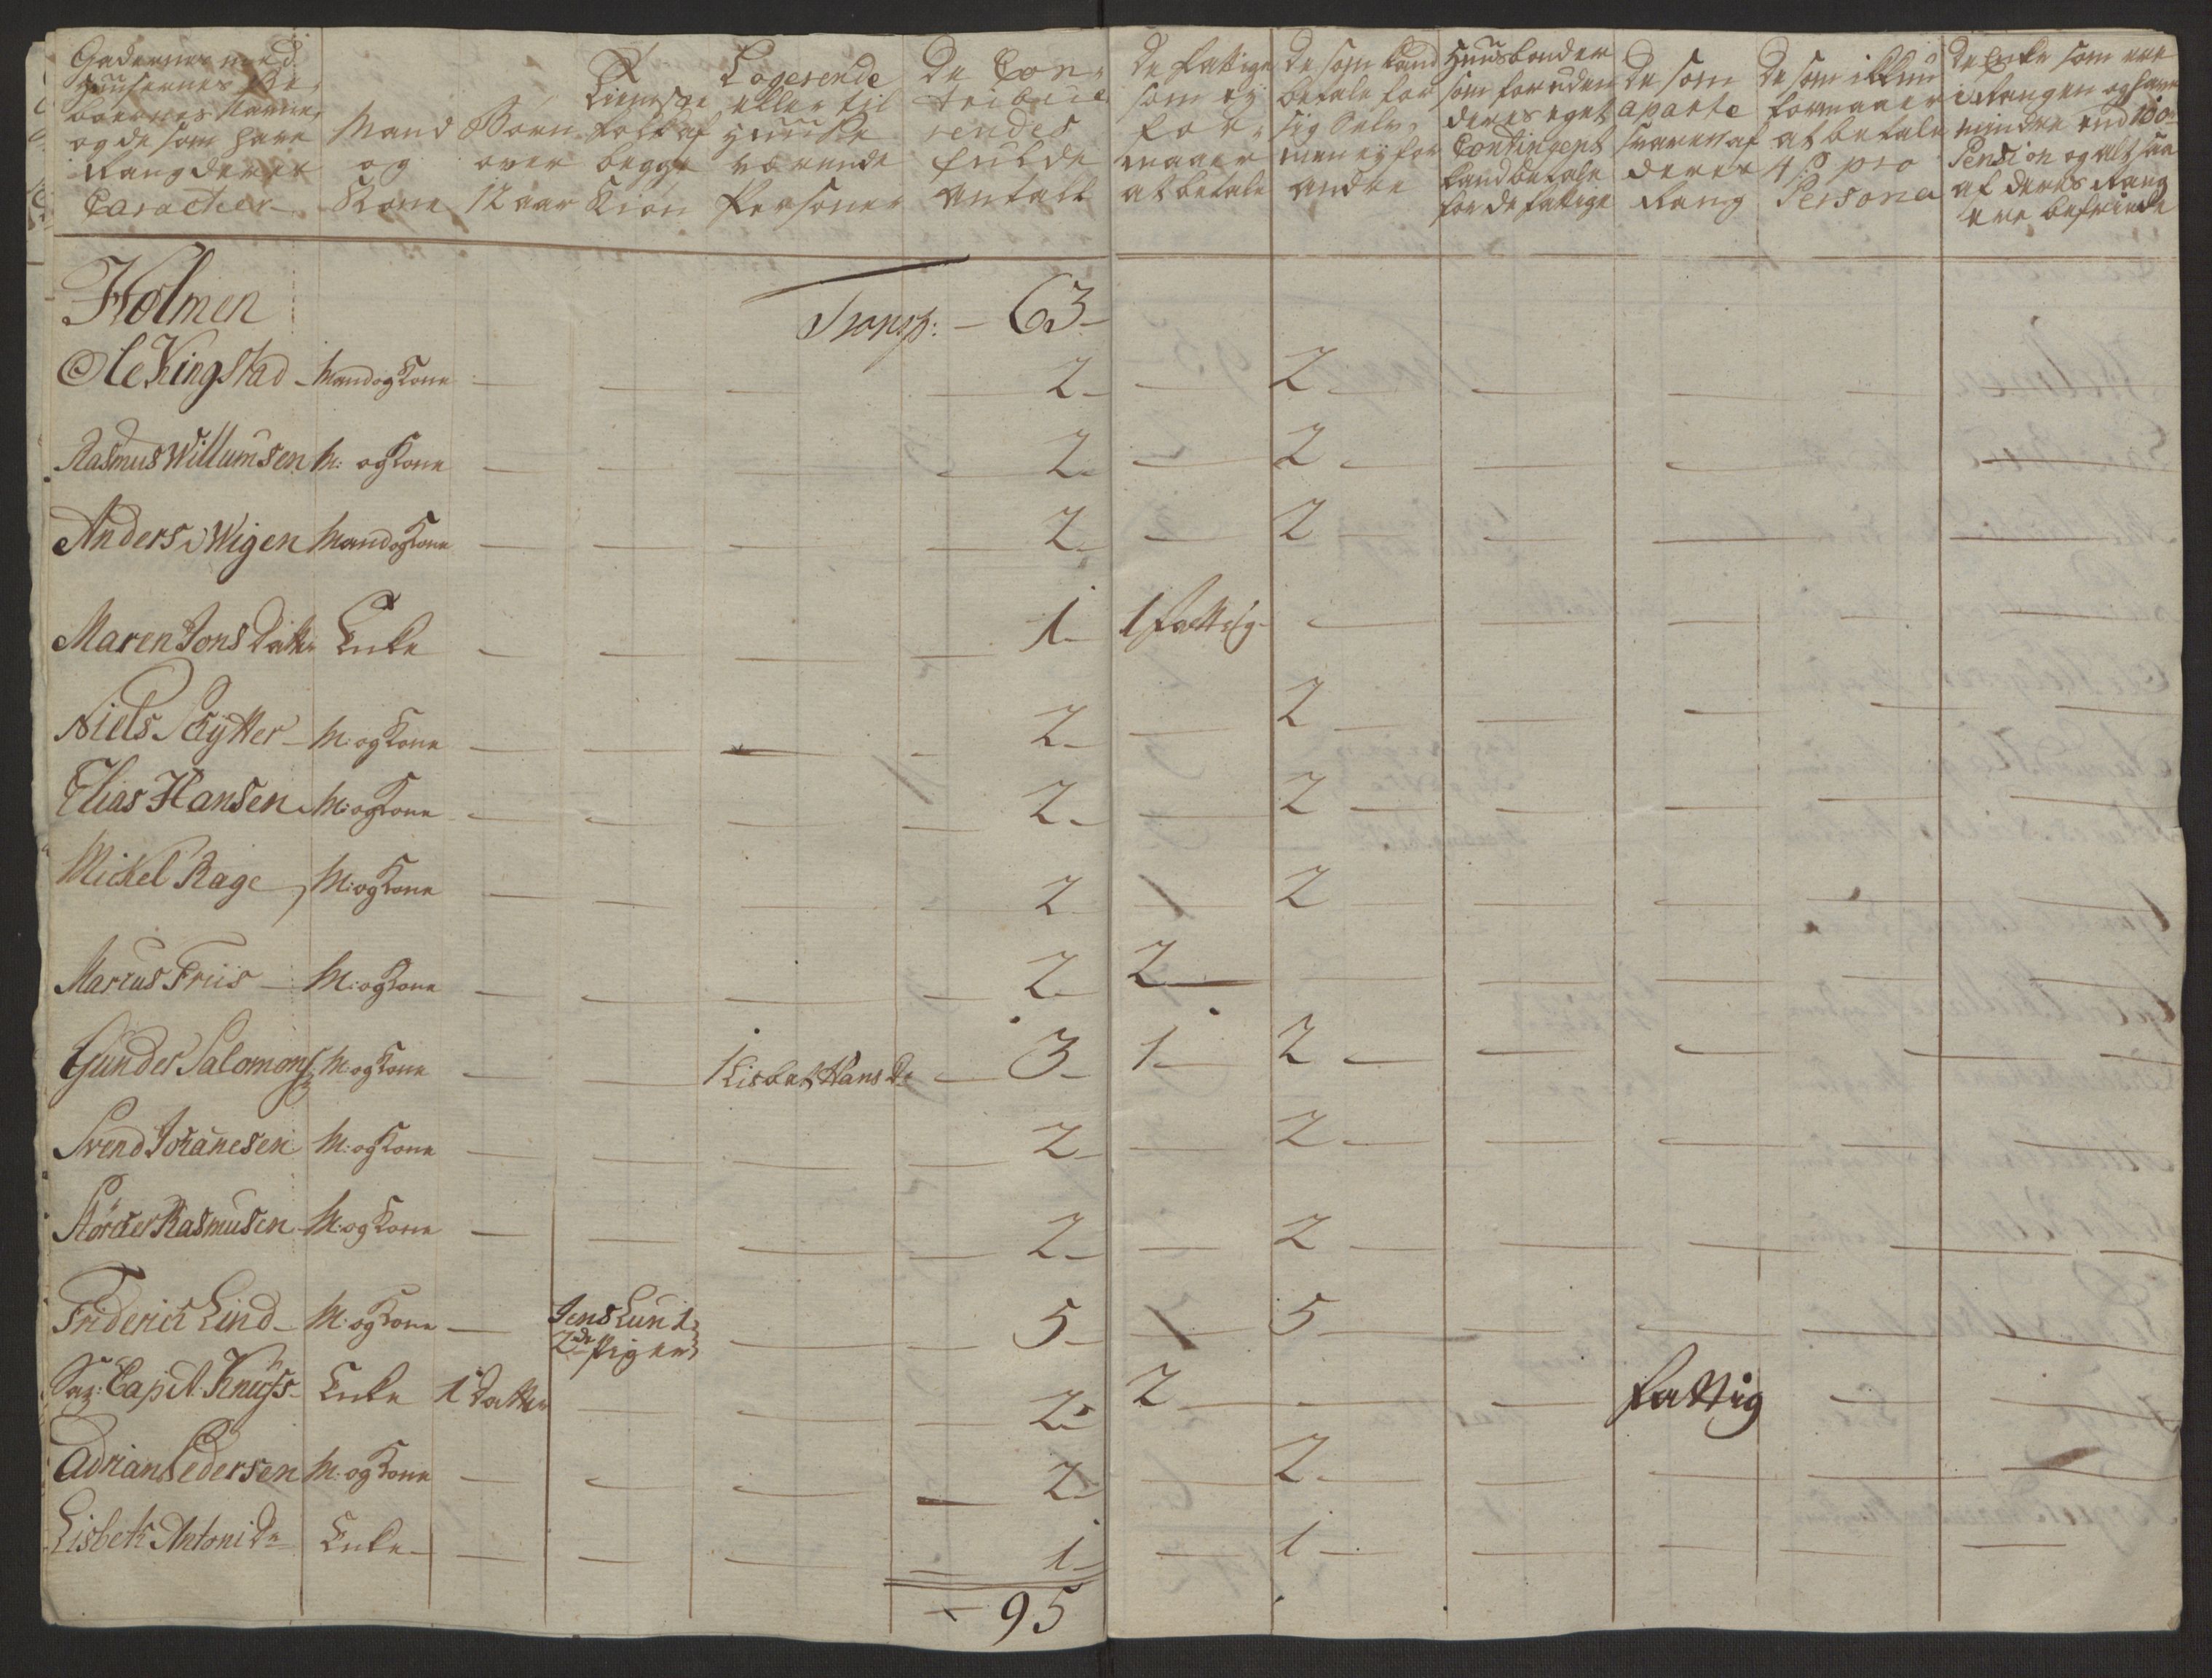 Gadernes med
Huusernes Be-
boernes Navne,
og de som have
Rang deres
Caracteer
Mand
og
Kone
Børn
over
12 aar
Tienneste
folk af
begge
Kiøn
Logerende
eller til
Huuse
værende
Personer
De Con-
tribue
rendes
fulde
Antall
De fattige
som ey
for-
maaer
at betale
De som kand
betale for
sig Selv,
men ey for
andre
Huusbonder
som foruden
deres eget
Contingent
kand betale
for de fattige
De som
aparte
svarer af
deres
Rang
De som ikkun
formaaer
at betale
4 ß pro
Persona
De Enker som ere
i Rangen og have
mindre end 100
Pension og altsaa
af deres Rang
ere befriede
Holmen
Transp: — 63 —
Ole Ringstad — Mand og Kone — — — — 2 — — 2 — — — — —
Rasmus Willumsen M: og Kone — — — — 2 — — 2 — — — — —
Anders Wigen Mand og Kone — — — — 2 — — 2 — — — — —
Maren Jons Datter Enke — — — — 1 — 1 fattig — — — — — —
Niels Skytter — M: og Kone — — — — 2 — — 2 — — — — —
Elias Hansen M: og Kone — — — — 2 — — 2 — — — — —
Mickel Rage — M: og Kone — — — — 2 — — 2 — — — — —
Marcus Friis — M: og Kone — — — — 2 — 2 — — — — — —
Gunder Salomons M: og Kone — — 1 Lisbet Hans Dr — 3 — 1 — 2 — — — — —
Svend Johanesen M: og Kone — — — — 2 — — 2 — — — — —
Störcker Rasmusen M: og Kone — — — — 2 — — 2 — — — — —
Friderich Lind — M: og Kone — Jens Lun 1 — — 5 — — 5 — — — — —
2de Piger
Sal: Capit. Knufs — Enke 1 Datter — — — 2 — 2 — — — fattig — —
Adrian Pedersen M: og Kone — — — — 2 — — 2 — — — — —
Lisbeth Antoni Dr Enke — — — — — 1 — — 1 — — — — —
— 95